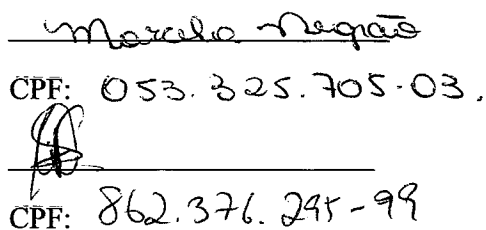 Marcela Negrão
CPF: 053.325.705-03.
CPF: 862.376.295-99